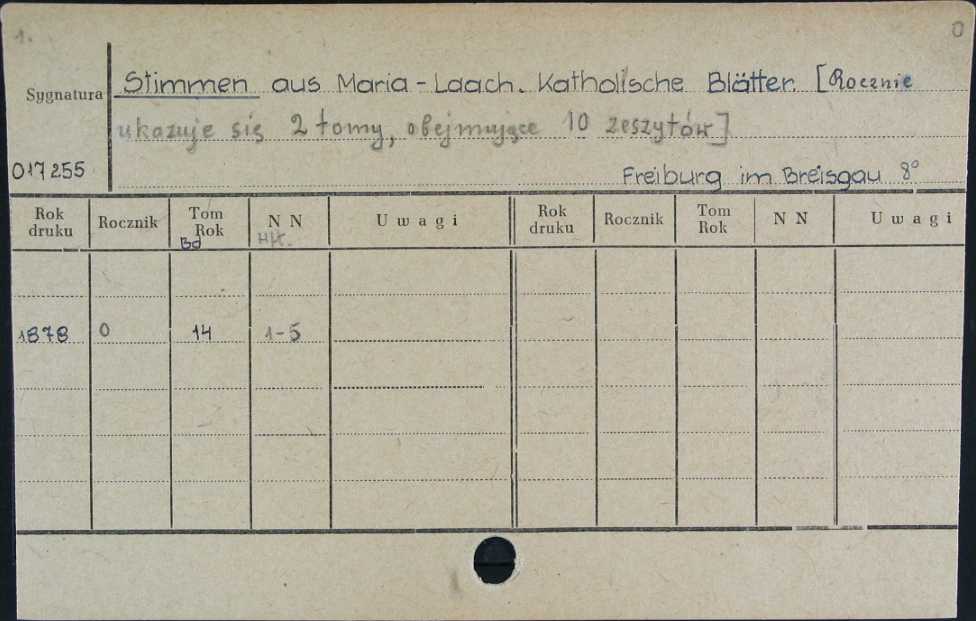 1. 0
Stimmen aus Maria-Laach. Katholische Blätter. [Rocznie
Sygnatura
ukazuje się 2 tomy, obejmujące 10 zeszytów]
017255
Freiburg im Breisgau 8°
Rok druku Rocznik Tom Rok Bd N N Hft. Uwagi Rok druku Rocznik Tom Rok N N Uwagi
1878 0 14 1-5